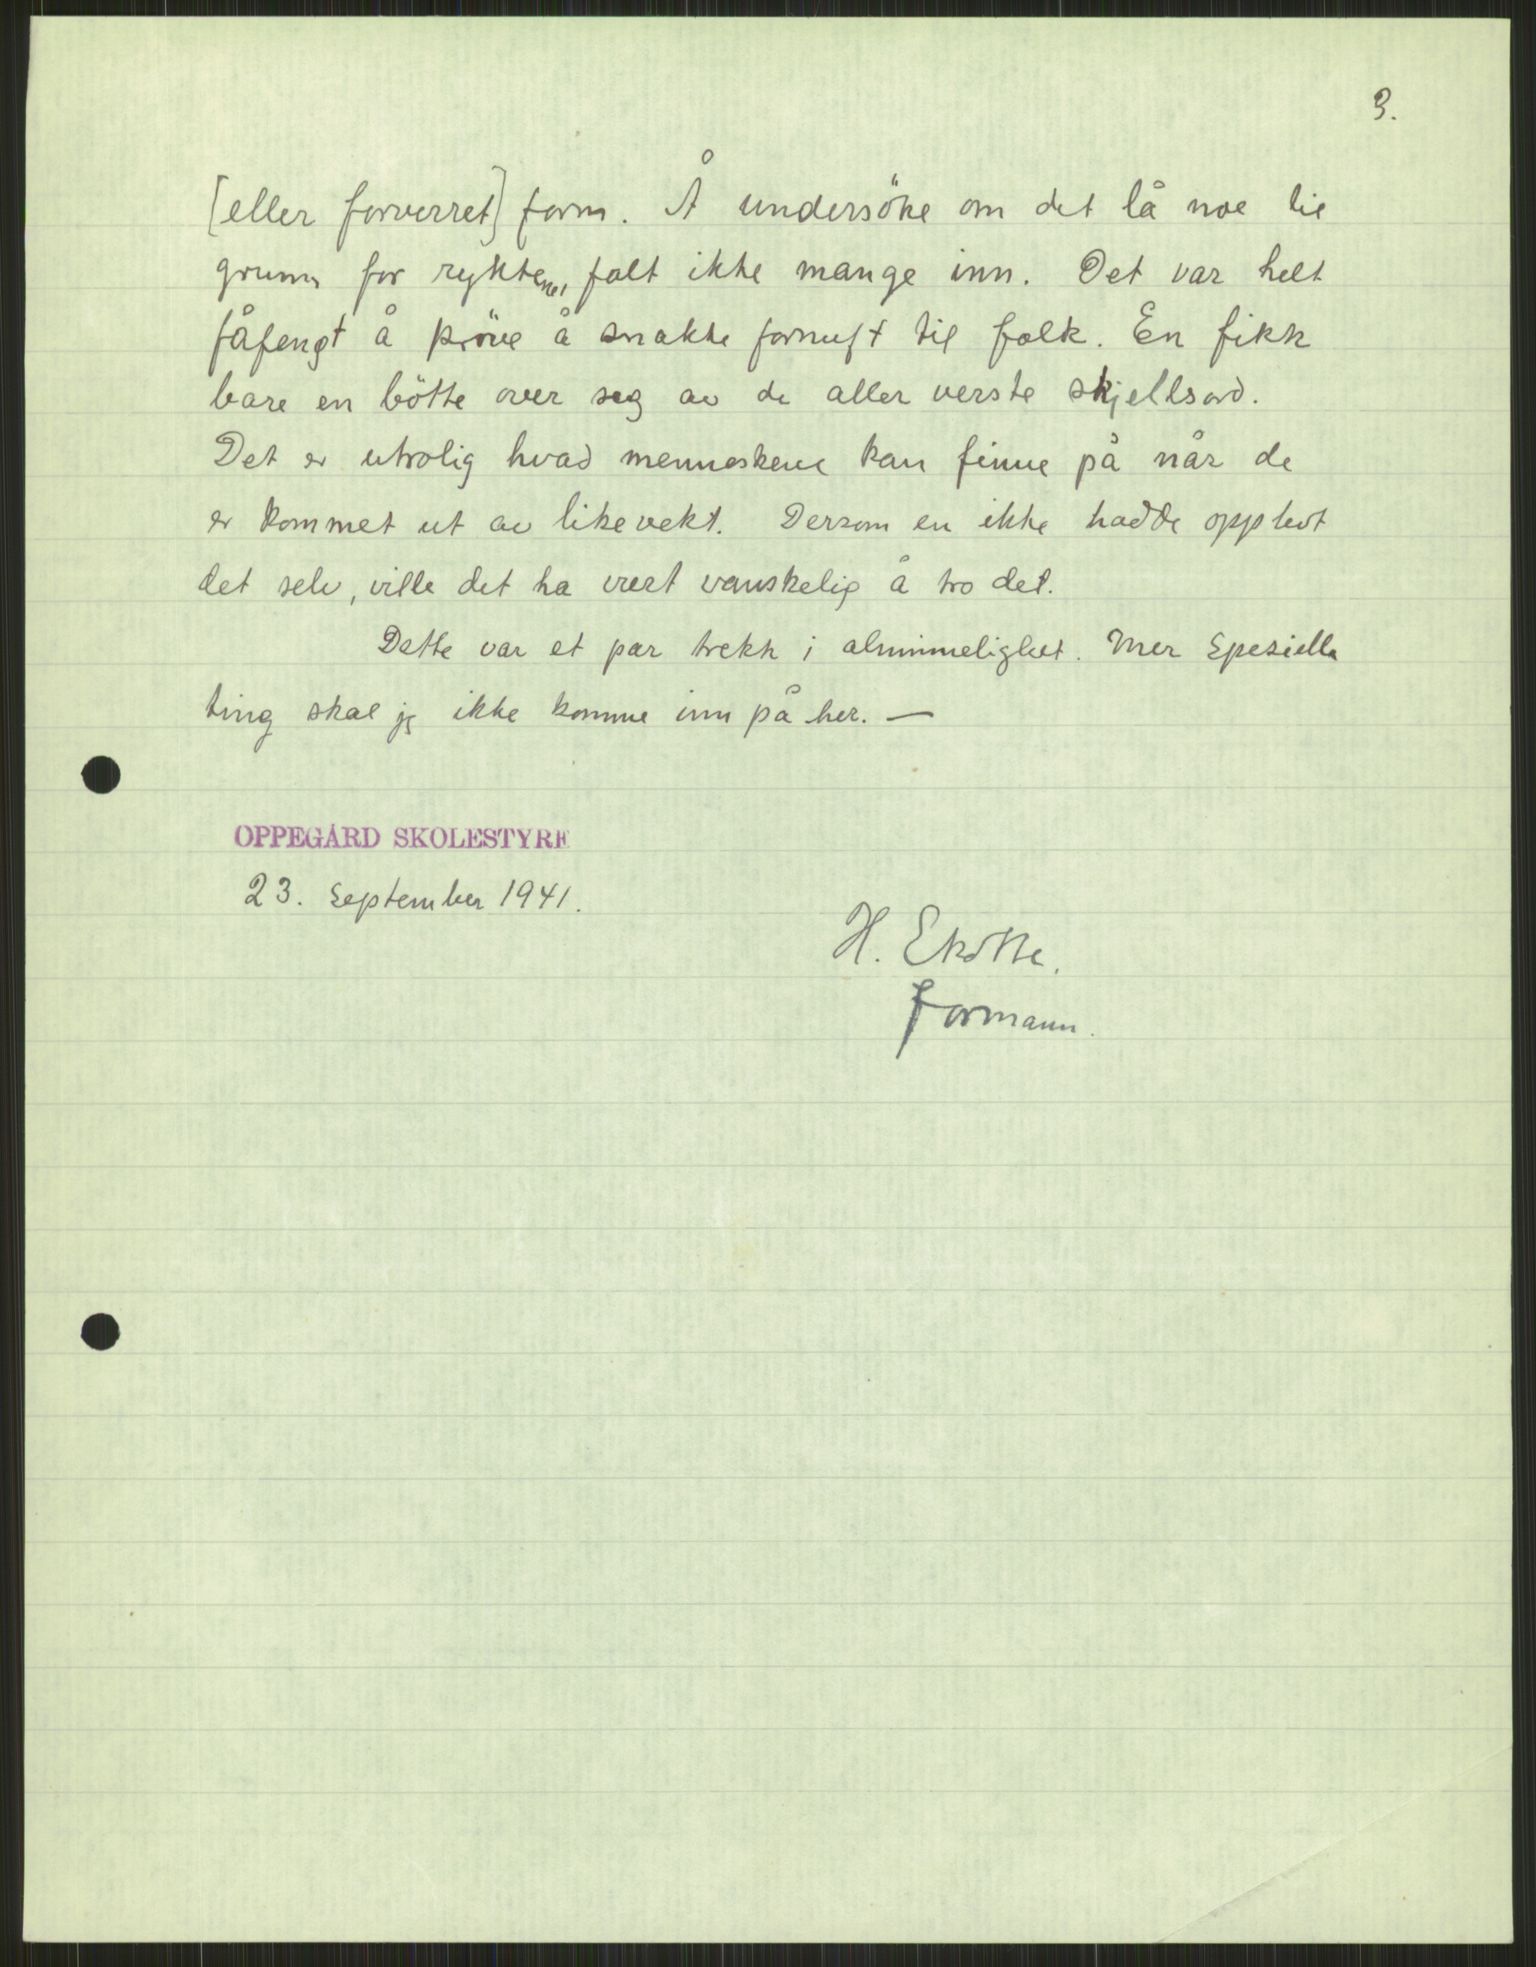 3.
[eller forverret] form. Å undersöke om det lå noe til
grunn for ryktene, falt ikke mange inn. Det var helt
fåfengt å pröve å snakke fornuft til folk. En fikk
bare en bötte over seg av de aller verste skjellsord.
Det er utrolig hvad menneskene kan finne på når de
er kommet ut av likevekt. Dersom en ikke hadde opplevt
det selv, ville det ha vært vanskelig å tro det.
Dette var et par trekk i alminnelighet. Mer spesielle
ting skal jg ikke komme inn på her. —
OPPEGÅRD SKOLESTYRE
23. september 1941.
H.
formann.